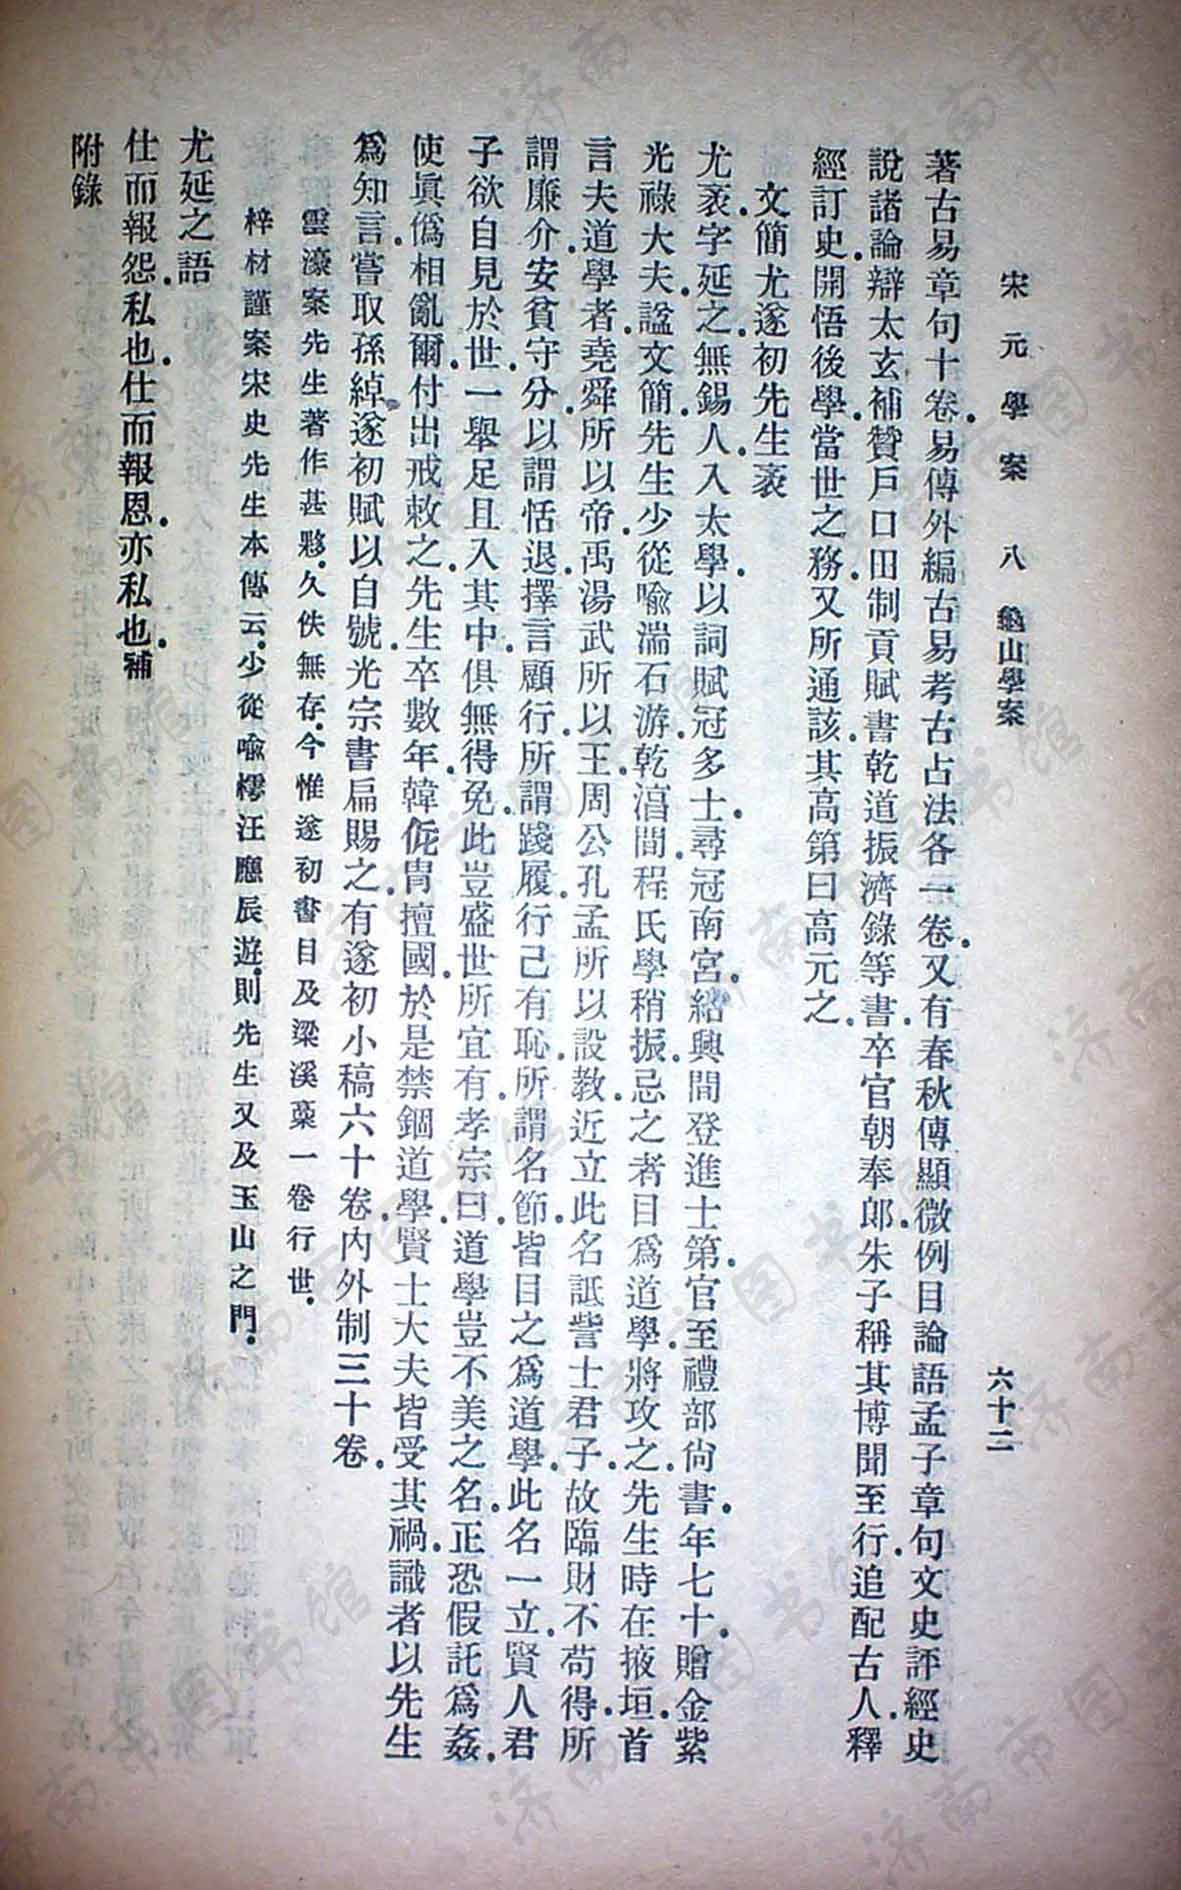 宋元學案 八 龜山學案 六十二
著古易章句十卷.易傳外編古易考古占法各一卷.又有春秋傳顯微例目論語孟子章句文史評經史
說諸論辯太玄補贊戶口田制貢賦書乾道振濟錄等書.卒官朝奉郎.朱子稱其博聞至行.追配古人.釋
經訂史.開悟後學.當世之務.又所通該.其高第曰高元之.
文簡尤遂初先生袤
尤袤.字延之.無錫人.入太學.以詞賦冠多士.尋冠南宮.紹興間登進士第.官至禮部尙書.年七十.贈金紫
光祿大夫.諡文簡.先生少從喩湍石游.乾淳間.程氏學稍振.忌之者目爲道學.將攻之.先生時在掖垣.首
言夫道學者.堯舜所以帝.禹湯武所以王.周公孔孟所以設敎.近立此名.詆訾士君子.故臨財不苟得.所
謂廉介.安貧守分.以謂恬退.擇言顧行.所謂踐履.行己有恥.所謂名節.皆目之爲道學.此名一立.賢人君
子欲自見於世.一舉足且入其中.俱無得免.此豈盛世所宜有.孝宗曰.道學豈不美之名.正恐假託爲姦.
使眞僞相亂爾.付出戒敕之.先生卒數年.韓侂冑擅國.於是禁錮道學.賢士大夫皆受其禍.識者以先生
爲知言.嘗取孫綽遂初賦以自號.光宗書扁賜之.有遂初小稿六十卷.內外制三十卷.
雲濠案先生著作甚夥.久佚無存.今惟遂初書目及梁溪藁一卷行世.
梓材謹案宋史先生本傳云.少從喩樗汪應辰遊.則先生又及玉山之門.
尤延之語
仕而報怨.私也.仕而報恩.亦私也.補
附錄